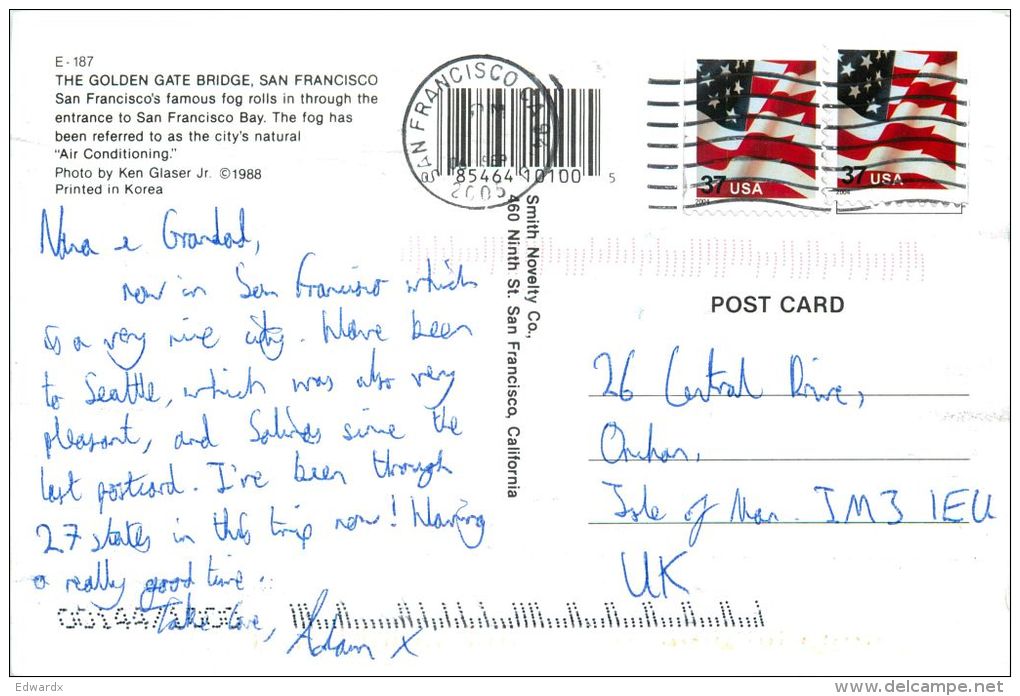 E-187
THE GOLDEN GATE BRIDGE, SAN FRANCISCO
San Francisco's famous fog rolls in through the
entrance to San Francisco Bay. The fog has
been referred to as the city's natural
"Air Conditioning."
Photo by Ken Glaser Jr. ©1988
Printed in Korea
Nana & Grandad,
now in San Francisco which
is a very nice city. Have been
to Seattle, which was also very
pleasant, and Salinas since the
last postcard. I've been through
27 states in this trip now! Having
a really good time.
Take love,
Adam X
SAN FRANCISCO CA
2005
85464 10100 5
Smith Novelty Co.,
460 Ninth St. San Francisco, California
37 USA
2004
37 USA
2004
POST CARD
26 Central Drive,
Onchan,
Isle of Man. IM3 1EU
UK
Edwardx
delcampe.net